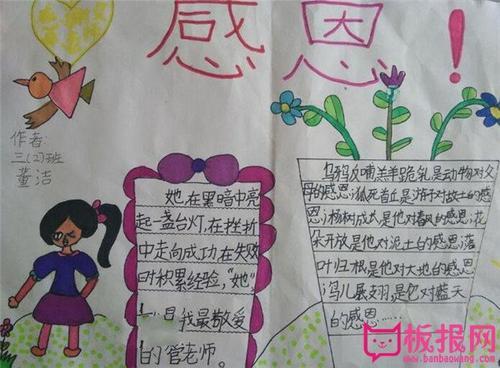 感恩!
作者
三(2)班
董洁
她,在黑暗中亮
起一盏台灯,在挫折
中走向成功,在失败
时积累经验,“她”
是我最敬爱
的管老师。
乌鸦反哺羔羊跪乳是动物对父
母的感恩;狐死首丘是游子对故土的感
恩;杨树成长是他对春风的感恩,花
朵开放是他对泥土的感恩;落
叶归根是他对大地的感恩
鸟儿展翅,是它对蓝天
的感恩……
板报网
www.banbaowang.com